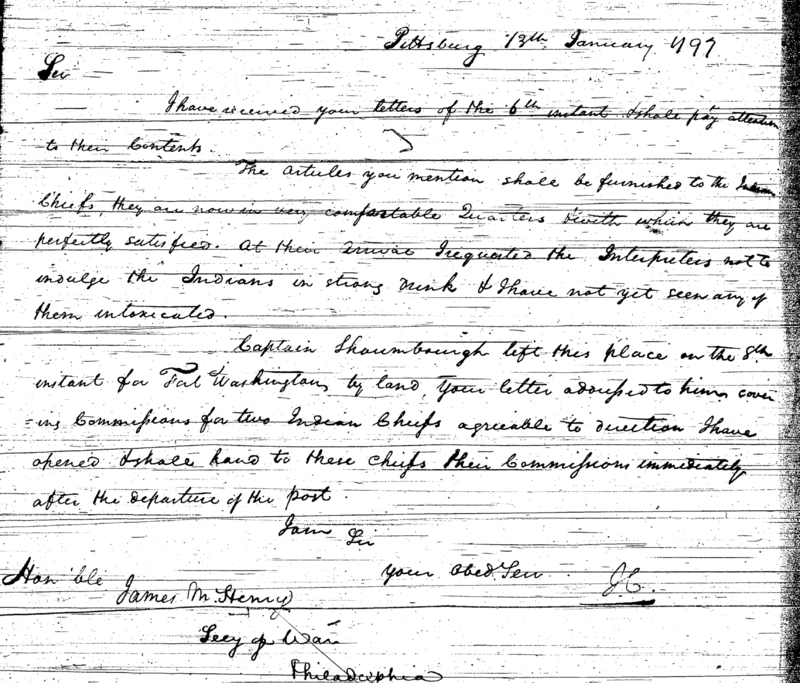 Pittsburg 13th January 1797
Sir
I have received your letters of the 6th instant & shall pay attention
to their Contents.
The articles you mention shall be furnished to the Indian
Chiefs, they are now in very comfortable Quarters & with which they are
perfectly satisfied. At their arrival I requested the Interpreters not to
indulge the Indians in strong drink & I have not yet seen any of
them intoxicated.
Captain Shoumbourgh left this place on the 8th
instant for Fort Washington, by land, your letter addressed to him cover
=ing Commissions for two Indian Chiefs agreeable to direction I have
opened & shall hand to these chiefs their Commissions immediately
after the departure of the post.
I am Sir
your Obed. Serv
J.C.
Hon'ble
James McHenry
Secy of War
Philadelphia